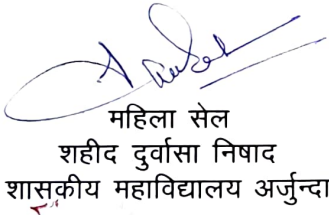 महिला सेल
शहीद दुर्वासा निषाद
शासकीय महाविद्यालय अर्जुन्दा